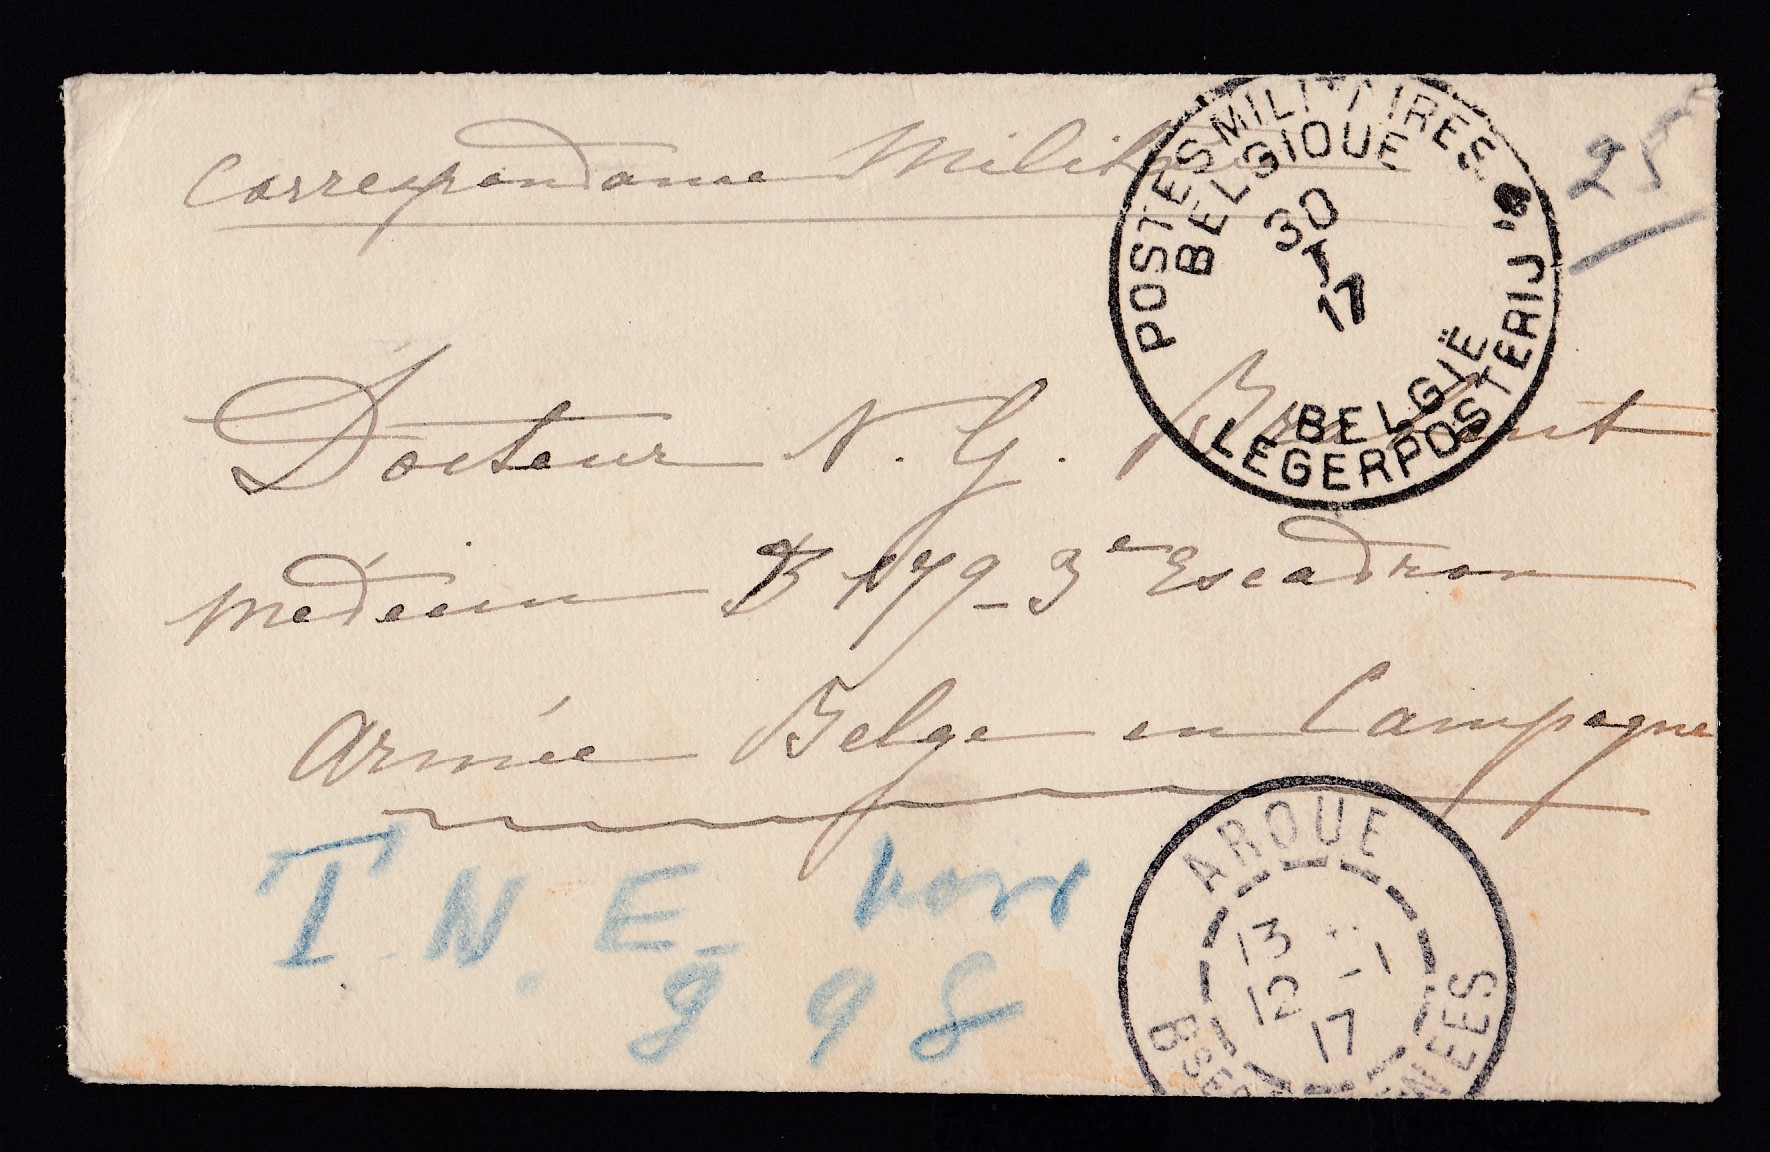 Correspondance Militaire
25
POSTES MILITAIRES
BELGIQUE
30
I
17
BELGIË
LEGERPOSTERIJ
Docteur N. G.
Médecin B 179 - 3e Escadron
Armée Belge en Campagne
T. N. E.
9 9 8
AROUE
13
12 -1
17
BSES PYRENEES